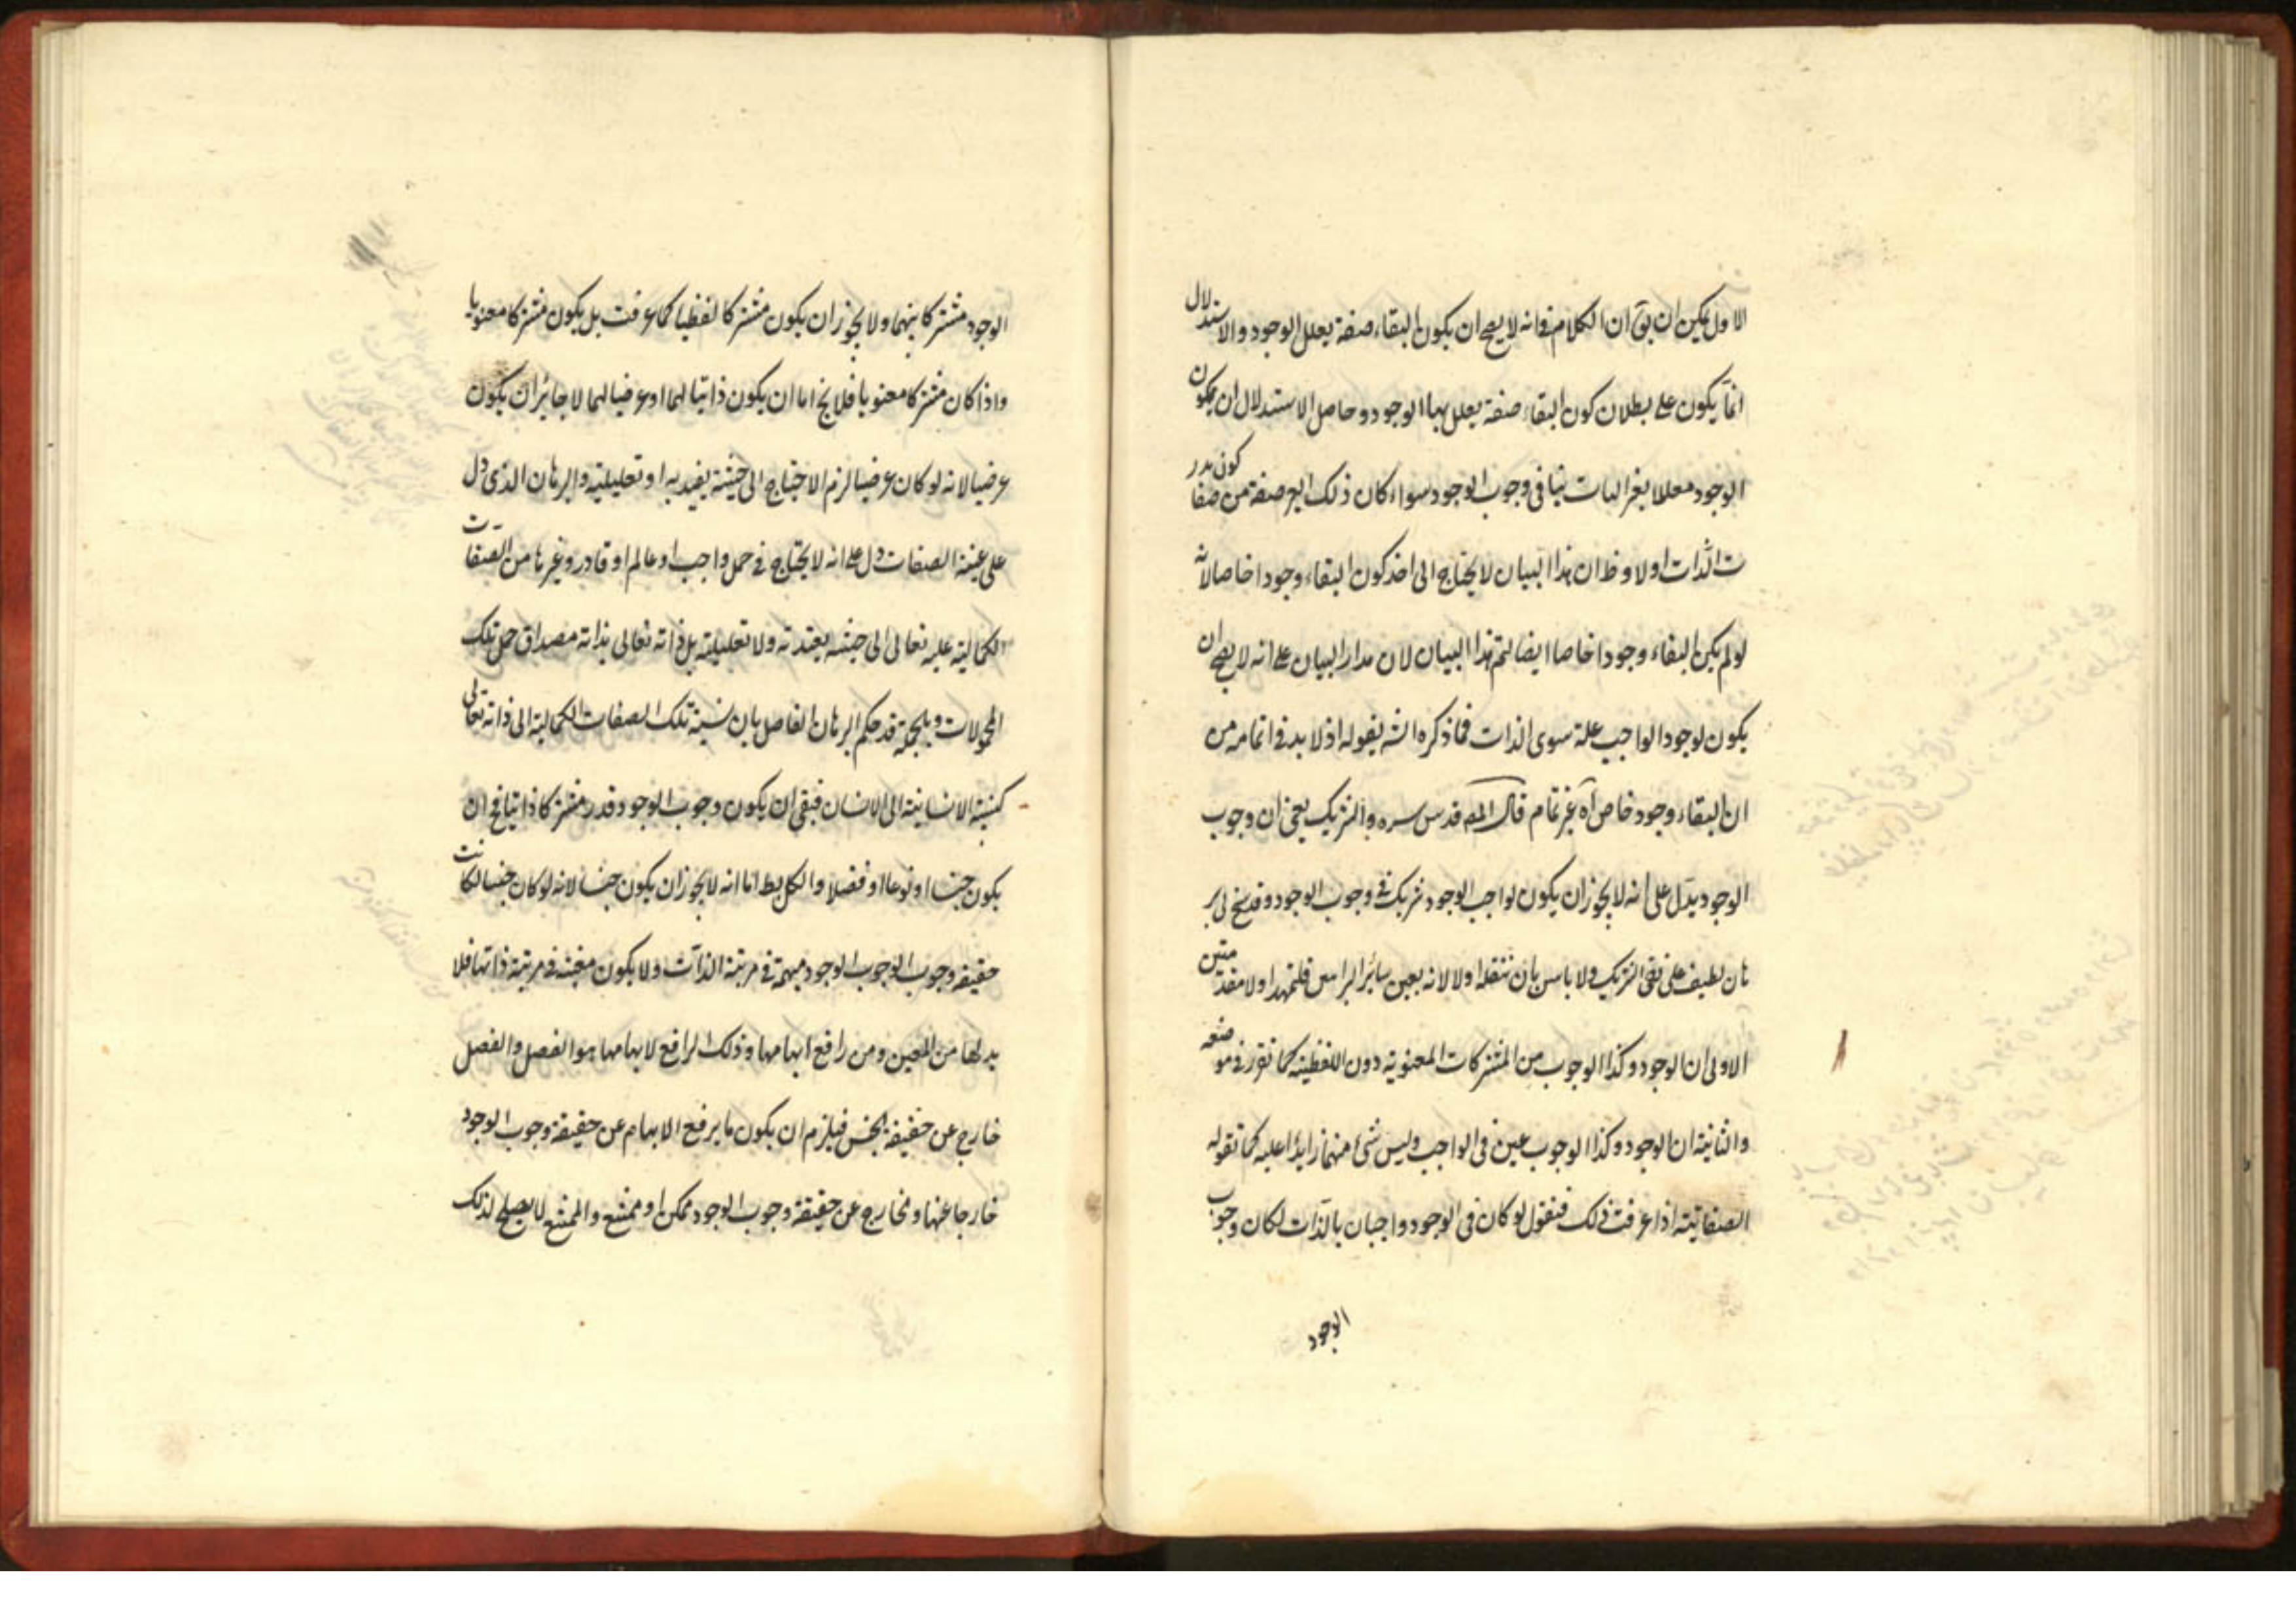 الاول يمكن ان يق ان الكلام في انه لا يصح ان يكون البقاء صفة يعلل الوجود والاستدلال
انما يكون على بطلان كون البقاء صفة يعلل بها الوجود وحاصل الاستدلال ان يكون
الوجود معللا بغير الذات ينافي وجوب الوجود سواء كان ذلك الغير صفة من صفا
ت الذات اولا وظ ان هذا البيان لا يحتاج الى اخذ كون البقاء وجودا خاصا لانه
لو لم يكن البقاء وجودا خاصا ايضا لتم هذا البيان لان مدار البيان على انه لا يصح ان
يكون لوجود الواجب علة سوى الذات فما ذكره الشه بقوله اذ لا بد في اتمامه من
ان البقاء وجود خاص آه غير تمام قال المص قدس سره والشريك يعني ان وجوب
الوجود يدل على انه لا يجوز ان يكون لواجب الوجود شريك في وجوب الوجود وقد سنح لى بر
هان لطيف على نفى الشريك ولا باس بان ننقله اولا لانه يعين سائر البراهين فلنمهد اولا مقدمتين
الاولى ان الوجود وكذا الوجوب من المشتركات المعنوية دون اللفظية كما تقرر في موضعه
والثانية ان الوجود وكذا الوجوب عين في الواجب وليس شئ منهما زايدا عليه كما تقوله
الصفاتية اذا عرفت ذلك فنقول لو كان في الوجود واجبان بالذات لكان وجوب
الوجود
الوجود مشتركا بينهما ولا يجوز ان يكون مشتركا لفظيا كما عرفت بل يكون مشتركا معنويا
واذا كان مشتركا معنويا فلا يخ اما ان يكون ذاتيا لهما او عرضيا لهما لا جائز ان يكون
عرضيا لانه لو كان عرضيا لزم الاحتياج الى حيثية تقييدية او تعليلية والبرهان الذى دل
على عينية الصفات دل على انه لا يحتاج في حمل واجب او عالم او قادر وغيرها من الصفات
الكمالية عليه تعالى الى حيثية تقييدية ولا تعليلية بل ذاته تعالى بذاته مصداق حمل تلك
المحمولات وبالجملة قد حكم البرهان الفاصل بان نسبة تلك الصفات الكمالية الى ذاته تعالى
كنسبة الانسانية الى الانسان فبقى ان يكون وجوب الوجود قدر مشتركا ذاتيا فح ان
يكون جنسا او نوعا او فصلا والكل بط اما انه لا يجوز ان يكون جنسا لانه لو كان جنسا لكانت
حقيقة وجوب الوجود مبهمة في مرتبة الذات ولا يكون معينة في مرتبة ذاتها فلا
بد لها من المعين ومن رافع ابهامها وذلك الرافع لابهامها هو الفصل والفصل
خارج عن حقيقة الجنس فيلزم ان يكون ما يرفع الابهام عن حقيقة وجوب الوجود
خارجا عنها وخارج عن حقيقة وجوب الوجود ممكن او ممتنع والممتنع لا يصلح لذلك